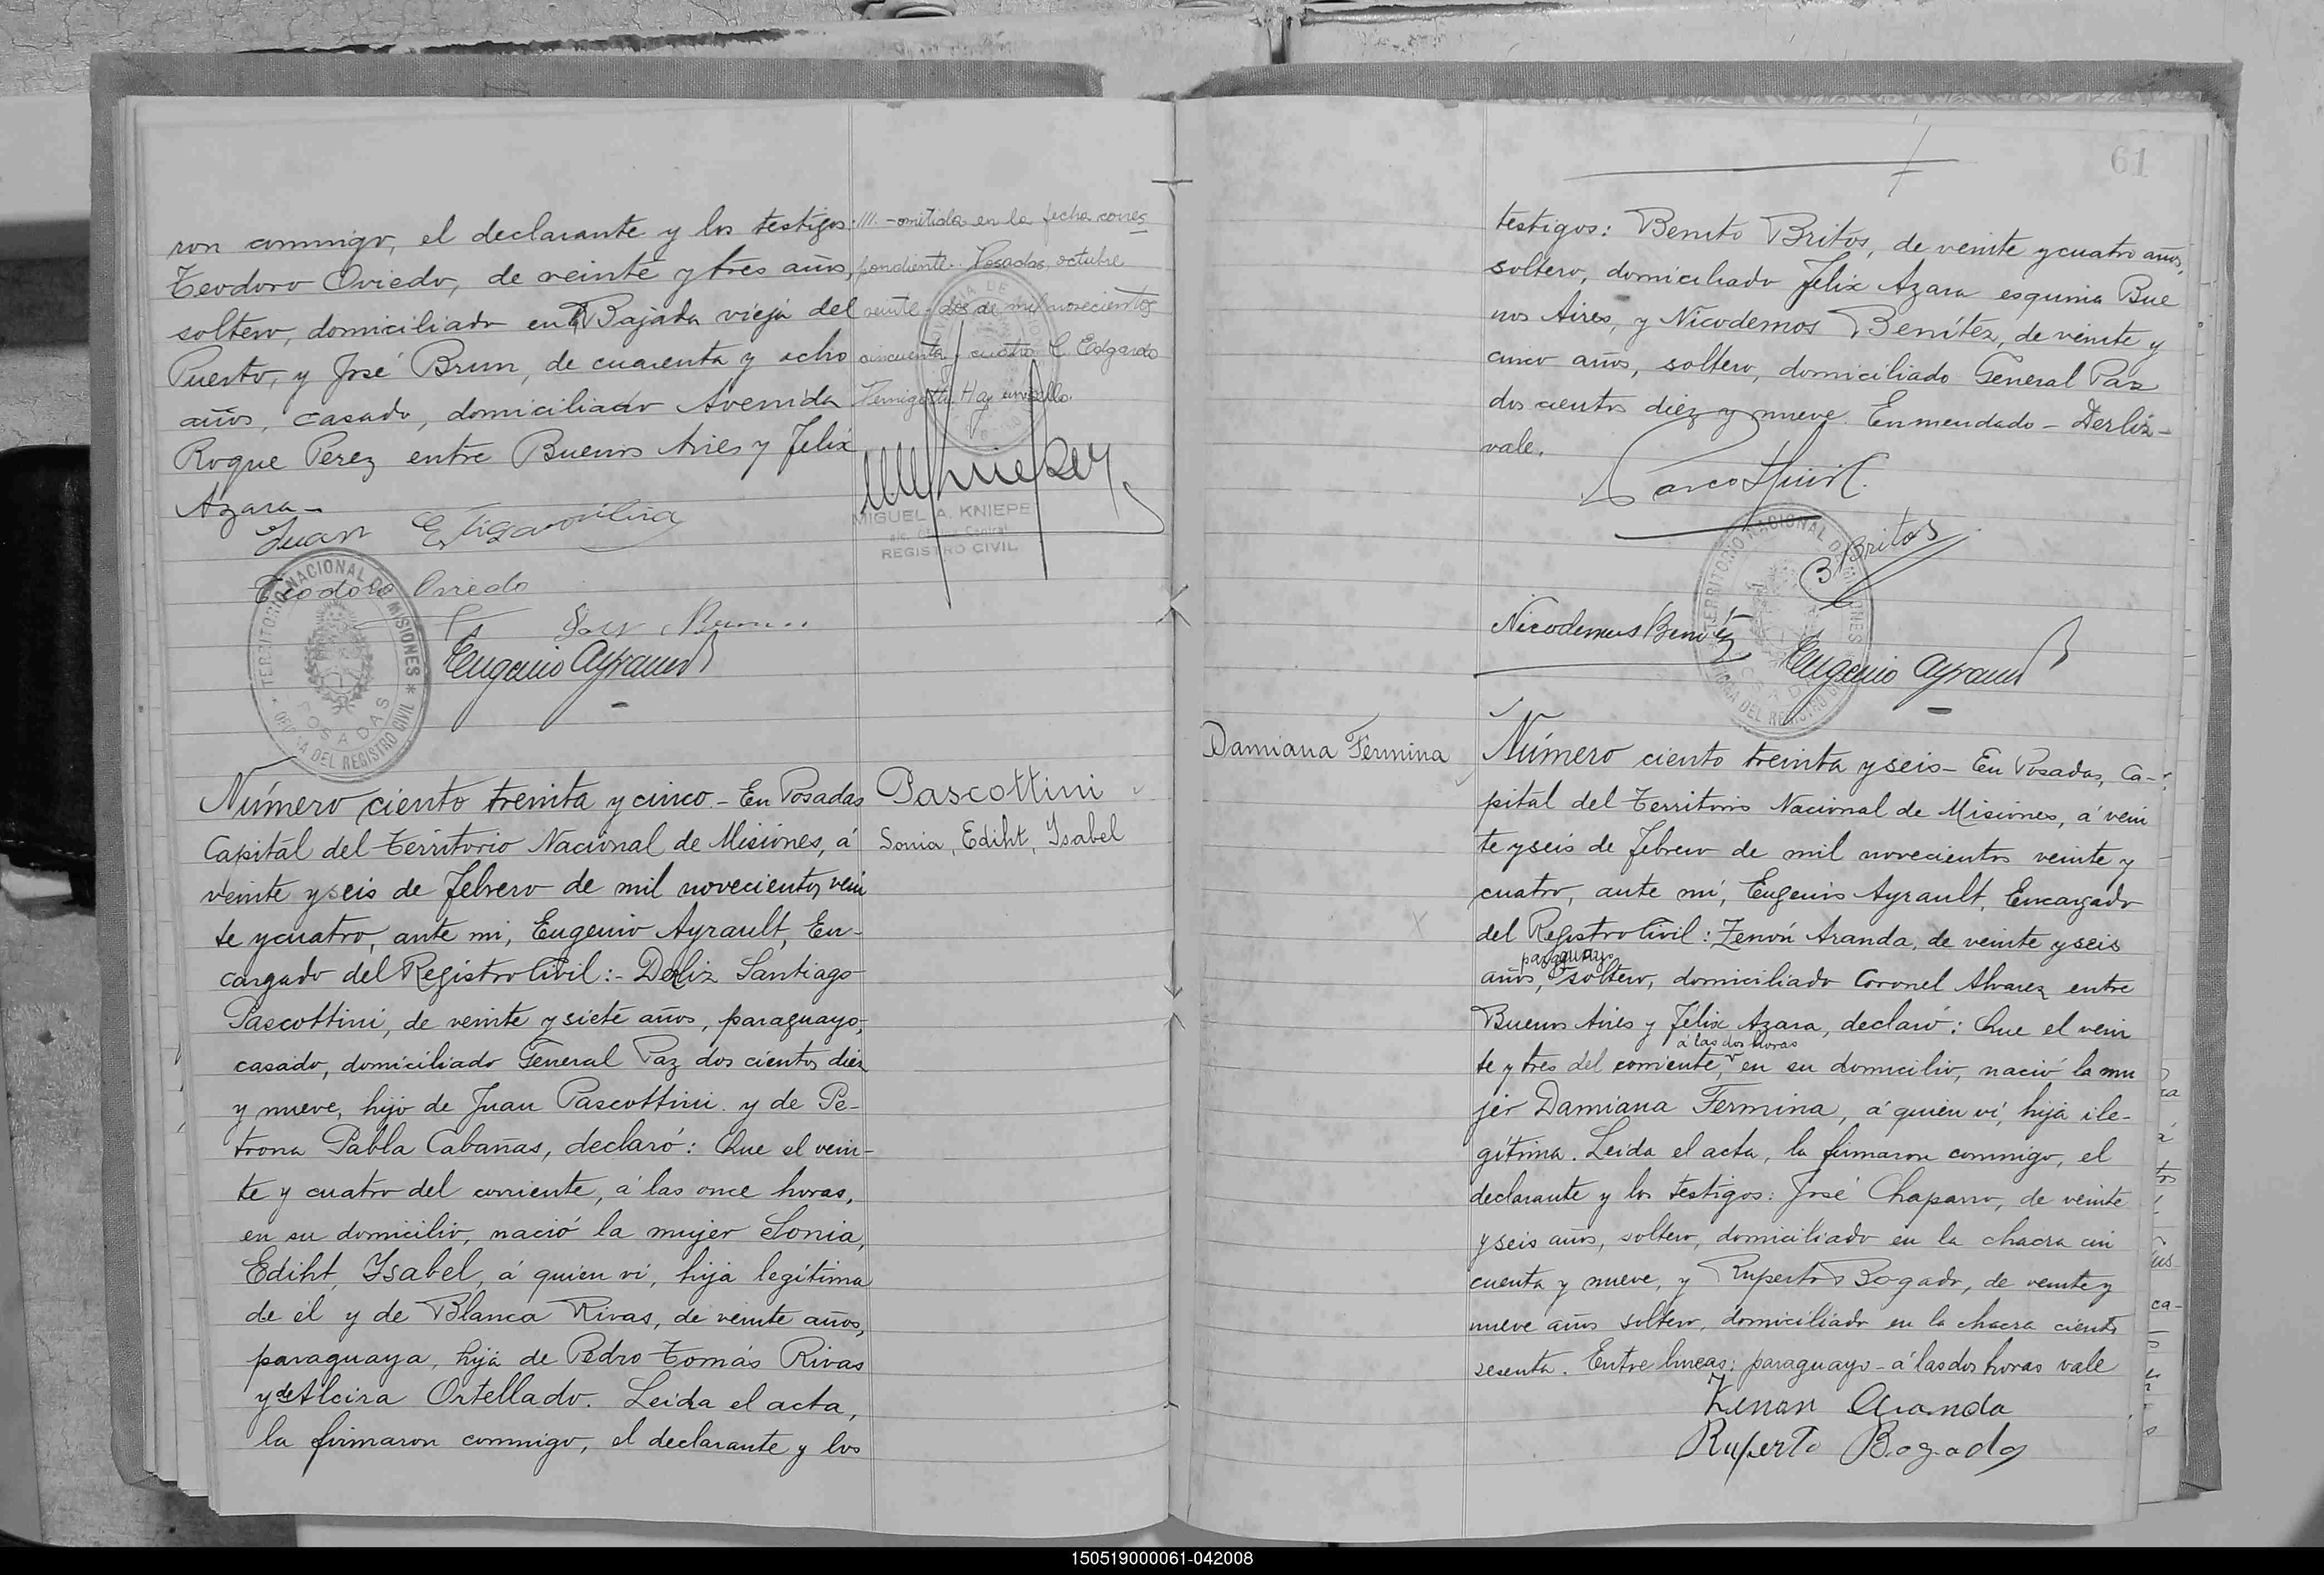 ron conmigo, el declarante y los testigos:
Teodoro Oviedo, de veinte y tres años,
soltero, domiciliado en la Bajada vieja del
Puerto, y José Brun, de cuarenta y ocho
años, casado, domiciliado Avenida
Roque Perez entre Buenos Aires y Felix
Azara-
///.-omitida en la fecha corres
pondiente. Posadas, octubre
veinte y dos de mil novecientos
cincuenta y cuatro C. Edgardo
Hay un sello.
MIGUEL A. KNIEPE
Oficina Central
REGISTRO CIVIL
Juan Estigarribia
Teodoro Oviedo
José Brun
Eugenio Ayrault
TERRITORIO NACIONAL DE MISIONES * OFICINA DEL REGISTRO CIVIL
POSADAS
Número ciento treinta y cinco.- En Posadas
Capital del Território Nacional de Misiones, á
veinte y seis de Febrero de mil novecientos vein
te y cuatro, ante mi, Eugenio Ayrault, En-
cargado del Registro Civil:- Derliz Santiago
Pascottini, de veinte y siete años, paraguayo,
casado, domiciliado General Paz dos cientos diez
y nueve, hijo de Juan Pascottini y de Pe-
trona Pabla Cabañas, declaró: Que el vein-
te y cuatro del corriente, á las once horas,
en su domicilio, nació la mujer Sonia,
Ediht, Isabel, á quien ví, hija legítima
de él y de Blanca Rivas, de veinte años,
paraguaya, hija de Pedro Tomás Rivas
y de Alcira Ortellado. Leida el acta,
la firmaron conmigo, el declarante y los
Pascottini
Sonia, Ediht, Isabel
61
testigos: Benito Britos, de veinte y cuatro años,
soltero, domiciliado Felix Azara esquina Bue
nos Aires, y Nicodemos Benítez, de veinte y
cinco años, soltero, domiciliado General Paz
dos cientos diez y nueve. Enmendado - Derliz-
vale.
B Britos
Nicodemus Benítez
Eugenio Ayrault
TERRITORIO NACIONAL DE MISIONES OFICINA DEL REGISTRO CIVIL
POSADAS
Damiana Fermina
Número ciento treinta y seis- En Posadas, Ca-
pital del Territorio Nacional de Misiones, á vein
te y seis de Febrero de mil novecientos veinte y
cuatro, ante mí, Eugenio Ayrault, Encargado
del Registro Civil: Zenón Aranda, de veinte y seis
paraguayo
años, soltero, domiciliado Coronel Alvarez entre
Buenos Aires y Felix Azara, declaró: Que el vein
á las dos horas
te y tres del corriente, en su domicilio, nació la mu
jer Damiana Fermina, á quien ví, hija ile-
gítima. Leida el acta, la firmaron conmigo, el
declarante y los testigos: José Chaparro, de veinte
y seis años, soltero, domiciliado en la chacra cin
cuenta y nueve, y Ruperto Bogado, de veinte y
nueve años soltero, domiciliado en la chacra ciento
sesenta. Entre lineas: paraguayo - á las dos horas vale
Zenon Aranda
Ruperto Bogado
150519000061-042008